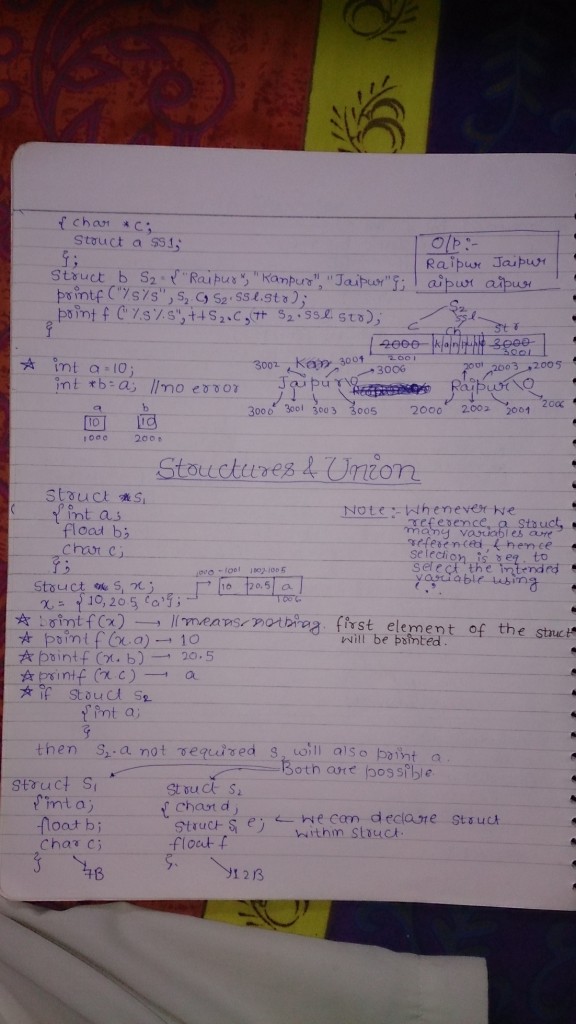 { char *c;
Struct a ss1;
};
Struct b S2 = {"Raipur", "Kanpur", "Jaipur"};
printf("%s%s", S2.C, S2.ss1.str);
printf("%s%s", ++S2.C, ++ S2.ss1.str);
}
O/p:-
Raipur Jaipur
aipur aipur
S2
C ss1
ch str
2000 K a n p u r 3000
2001 3001
☆ int a=10;
int *b=a; //no error
a b
10 10
1000 2000
3002 Kan 3004
3006
Jaipur\0
3000 3001 3003 3005
2001 2003 2005
Raipur\0
2000 2002 2004 2006
Structures & Union
Struct S1
{ int a;
float b;
char c;
};
Struct S1 x;
x = {10,20.5,'a'};
1000-1001 1002-1005
10 20.5 a
1006
Note:- Whenever we
reference a struct,
many variables are
referenced, & hence
selection is req. to
select the intended
variable using
(.)
☆ printf(x) → //means nothing. first element of the struct
will be printed.
☆ printf(x.a) → 10
☆ printf(x.b) → 20.5
☆ printf(x.c) → a
☆ if struct S2
{int a;
}
then S2.a not required S2 will also print a.
Both are possible
Struct S1
{int a;
float b;
char c;
}
7B
Struct S2
{ char d;
Struct S1 e; ← we can declare struct
within struct.
float f
}.
12B